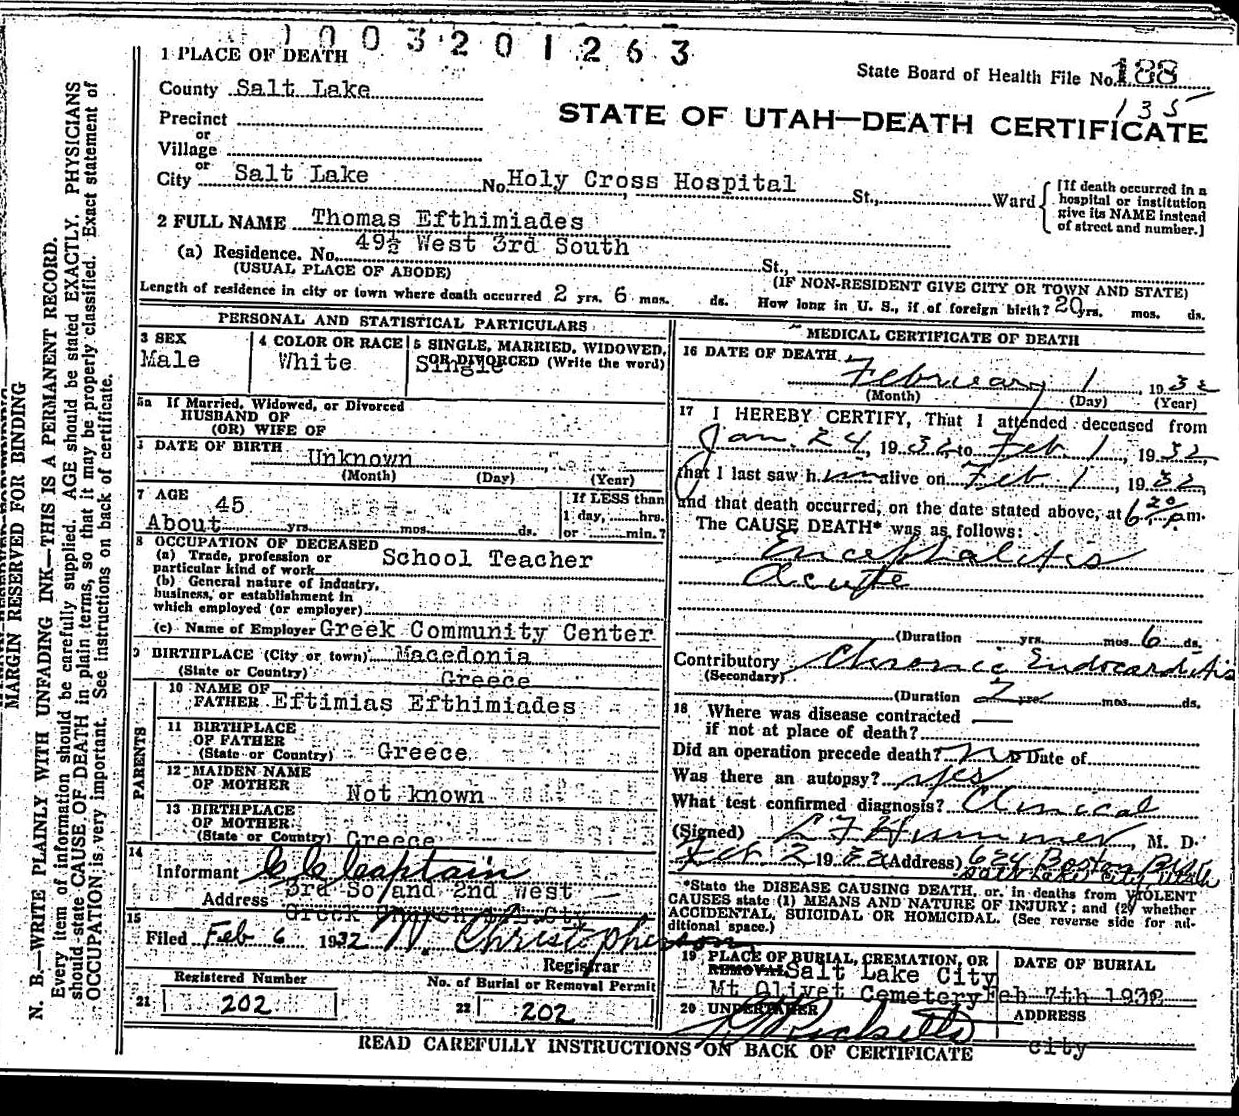 1003201263
1 PLACE OF DEATH
State Board of Health File No. 188
135
County Salt Lake
STATE OF UTAH—DEATH CERTIFICATE
Precinct
or
Village
or
City Salt Lake No. Holy Cross Hospital St., Ward
[If death occurred in a
hospital or institution
give its NAME instead
of street and number.]
2 FULL NAME Thomas Efthimiades
(a) Residence. No. 49½ West 3rd South St.,
(USUAL PLACE OF ABODE) (IF NON-RESIDENT GIVE CITY OR TOWN AND STATE)
Length of residence in city or town where death occurred 2 yrs. 6 mos. ds. How long in U. S., if of foreign birth? 20 yrs. mos. ds.
PERSONAL AND STATISTICAL PARTICULARS
3 SEX
Male
4 COLOR OR RACE
White
5 SINGLE, MARRIED, WIDOWED,
OR DIVORCED (Write the word)
Single
5a If Married, Widowed, or Divorced
HUSBAND OF
(OR) WIFE OF
DATE OF BIRTH
Unknown
(Month) (Day) (Year)
7 AGE
About 45 yrs. mos. ds.
If LESS than
1 day, hrs.
or min.?
8 OCCUPATION OF DECEASED
(a) Trade, profession or
particular kind of work School Teacher
(b) General nature of industry,
business, or establishment in
which employed (or employer)
(c) Name of Employer Greek Community Center
9 BIRTHPLACE (City or town) Macedonia
(State or Country) Greece
PARENTS
10 NAME OF
FATHER Eftimias Efthimiades
11 BIRTHPLACE
OF FATHER
(State or Country) Greece
12 MAIDEN NAME
OF MOTHER Not known
13 BIRTHPLACE
OF MOTHER
(State or Country) Greece
14
Informant C C Captain
Address 3rd So and 2nd West
Greek Church S.L.Cty
15
Filed Feb 6 1932 W. Christopherson
Registrar
Registered Number
21 202
No. of Burial or Removal Permit
22 202
MEDICAL CERTIFICATE OF DEATH
16 DATE OF DEATH
February 1, 1932
(Month) (Day) (Year)
17 I HEREBY CERTIFY, That I attended deceased from
Jan. 24, 1932 to Feb 1, 1932,
that I last saw him alive on Feb 1, 1932,
and that death occurred, on the date stated above, at 6 20 p.m.
The CAUSE DEATH* was as follows:
Encephalitis
acute
(Duration yrs. mos. 6 ds.
Contributory Chronic Endocarditis
(Secondary)
(Duration 2 yrs. mos. ds.
18 Where was disease contracted —
if not at place of death?
Did an operation precede death? No Date of
Was there an autopsy? yes
What test confirmed diagnosis? Clinical
(Signed) L F Hummer, M. D.
Feb 2 1932 (Address) 624 Boston Bldg
Salt Lake City Utah
*State the DISEASE CAUSING DEATH, or, in deaths from VIOLENT
CAUSES state (1) MEANS AND NATURE OF INJURY; and (2) whether
ACCIDENTAL, SUICIDAL OR HOMICIDAL. (See reverse side for ad-
ditional space.)
19 PLACE OF BURIAL, CREMATION, OR
REMOVAL Salt Lake City
Mt Olivet Cemetery
DATE OF BURIAL
Feb 7th 1932
20 UNDERTAKER
ADDRESS
city
READ CAREFULLY INSTRUCTIONS ON BACK OF CERTIFICATE
MARGIN RESERVED FOR BINDING
N. B.—WRITE PLAINLY WITH UNFADING INK—THIS IS A PERMANENT RECORD.
Every item of information should be carefully supplied. AGE should be stated EXACTLY. PHYSICIANS
should state CAUSE OF DEATH in plain terms, so that it may be properly classified. Exact statement of
OCCUPATION is very important. See instructions on back of certificate.